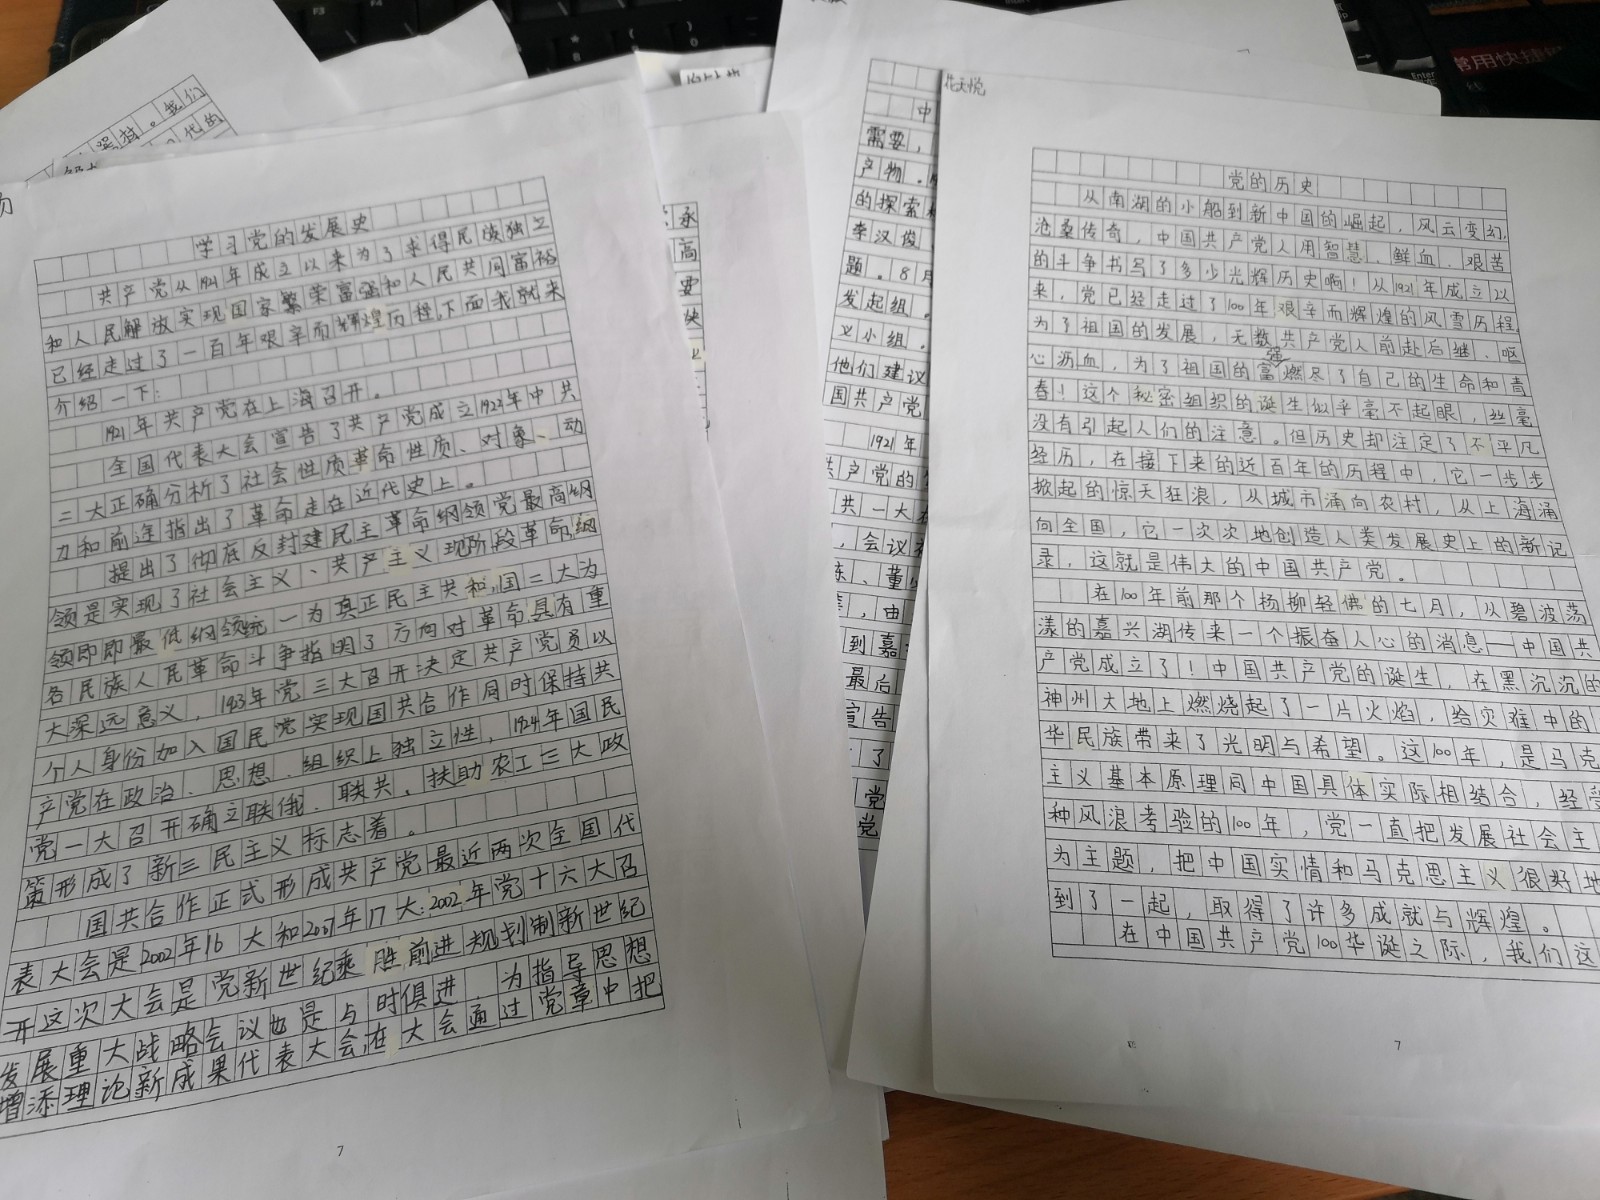 学习党的发展史
共产党从1921年成立以来为了求得民族独立
和人民解放实现国家繁荣富强和人民共同富裕
已经走过了一百年艰辛而辉煌历程,下面我就来
介绍一下:
1921年共产党在上海召开。
全国代表大会宣告了共产党成立1922年中共
二大正确分析了社会性质革命性质、对象、动
力和前途指出了革命走在近代史上。
提出了彻底反封建民主革命纲领党最高纲
领是实现了社会主义、共产主义现阶段革命纲
领即即最低纲领统一为真正民主共和国二大为
各民族人民革命斗争指明了方向对革命具有重
大深远意义,1923年党三大召开决定共产党员以
个人身份加入国民党实现国共合作同时保持共
产党在政治、思想、组织上独立性,1924年国民
党一大召开确立联俄、联共、扶助农工三大政
策形成了新三民主义标志着。
国共合作正式形成共产党最近两次全国代
表大会是2002年16大和2007年17大:2002年党十六大召
开这次大会是党新世纪乘胜前进规划制新世纪
发展重大战略会议也是与时俱进、为指导思想
增添理论新成果代表大会,在大会通过党章中把
7
需要,
产物。
的探索
李汉俊
题。8月
发起组。
义小组。
他们建议
国共产党
1921年
共产党的
共一大在
,会议
到嘉
最后
宣告
了
党
党
花天悦
党的历史
从南湖的小船到新中国的崛起,风云变幻,
沧桑传奇,中国共产党人用智慧、鲜血、艰苦
的斗争书写了多少光辉历史啊!从1921年成立以
来,党已经走过了100年艰辛而辉煌的风雪历程,
为了祖国的发展,无数共产党人前赴后继、呕
心沥血,为了祖国的富强燃尽了自己的生命和青
春!这个秘密组织的诞生似乎毫不起眼,丝毫
没有引起人们的注意。但历史却注定了不平凡
经历,在接下来的近百年的历程中,它一步步
掀起的惊天狂浪,从城市涌向农村,从上海涌
向全国,它一次次地创造人类发展史上的新记
录,这就是伟大的中国共产党。
在100年前那个扬柳轻佛的七月,从碧波荡
漾的嘉兴湖传来一个振奋人心的消息—中国共
产党成立了!中国共产党的诞生,在黑沉沉的
神州大地上燃烧起了一片火焰,给灾难中的
华民族带来了光明与希望。这100年,是马克
主义基本原理同中国具体实际相结合,经受
种风浪考验的100年,党一直把发展社会主
为主题,把中国实情和马克思主义很好地
到了一起,取得了许多成就与辉煌。
在中国共产党100华诞之际,我们这
7